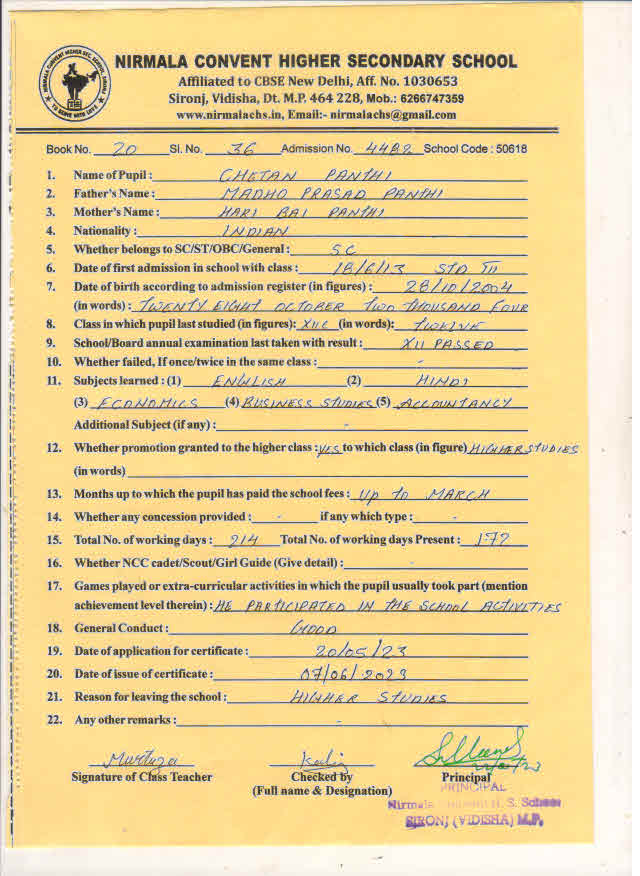 NIRMALA CONVENT HIGHER SECONDARY SCHOOL
Affiliated to CBSE New Delhi, Aff. No. 1030653
Sironj, Vidisha, Dt. M.P. 464 228, Mob.: 6266747359
www.nirmalachs.in, Email:- nirmalachs@gmail.com
Book No. 20 Sl. No. 36 Admission No. 4482 School Code : 50618
1. Name of Pupil : CHETAN PANTHI
2. Father's Name : MADHO PRASAD PANTHI
3. Mother's Name : HARI BAI PANTHI
4. Nationality : INDIAN
5. Whether belongs to SC/ST/OBC/General : SC
6. Date of first admission in school with class : 18/6/13 STD III
7. Date of birth according to admission register (in figures) : 28/10/2004
(in words) : TWENTY EIGHT OCTOBER TWO THOUSAND FOUR
8. Class in which pupil last studied (in figures): XII C (in words): TWELVE
9. School/Board annual examination last taken with result : XII PASSED
10. Whether failed, If once/twice in the same class : -
11. Subjects learned : (1) ENGLISH (2) HINDI
(3) ECONOMICS (4) BUSINESS STUDIES (5) ACCOUNTANCY
Additional Subject (if any) : -
12. Whether promotion granted to the higher class : YES to which class (in figure) HIGHER STUDIES
(in words)
13. Months up to which the pupil has paid the school fees : UP TO MARCH
14. Whether any concession provided : - if any which type : -
15. Total No. of working days : 214 Total No. of working days Present : 172
16. Whether NCC cadet/Scout/Girl Guide (Give detail) : -
17. Games played or extra-curricular activities in which the pupil usually took part (mention
achievement level therein) : HE PARTICIPATED IN THE SCHOOL ACTIVITIES
18. General Conduct : GOOD
19. Date of application for certificate : 20/05/23
20. Date of issue of certificate : 07/06/2023
21. Reason for leaving the school : HIGHER STUDIES
22. Any other remarks : -
Murtuza
Signature of Class Teacher Checked by Principal
(Full name & Designation)
PRINCIPAL
Nirmala Convent H. S. School
SIRONJ (VIDISHA) M.P.